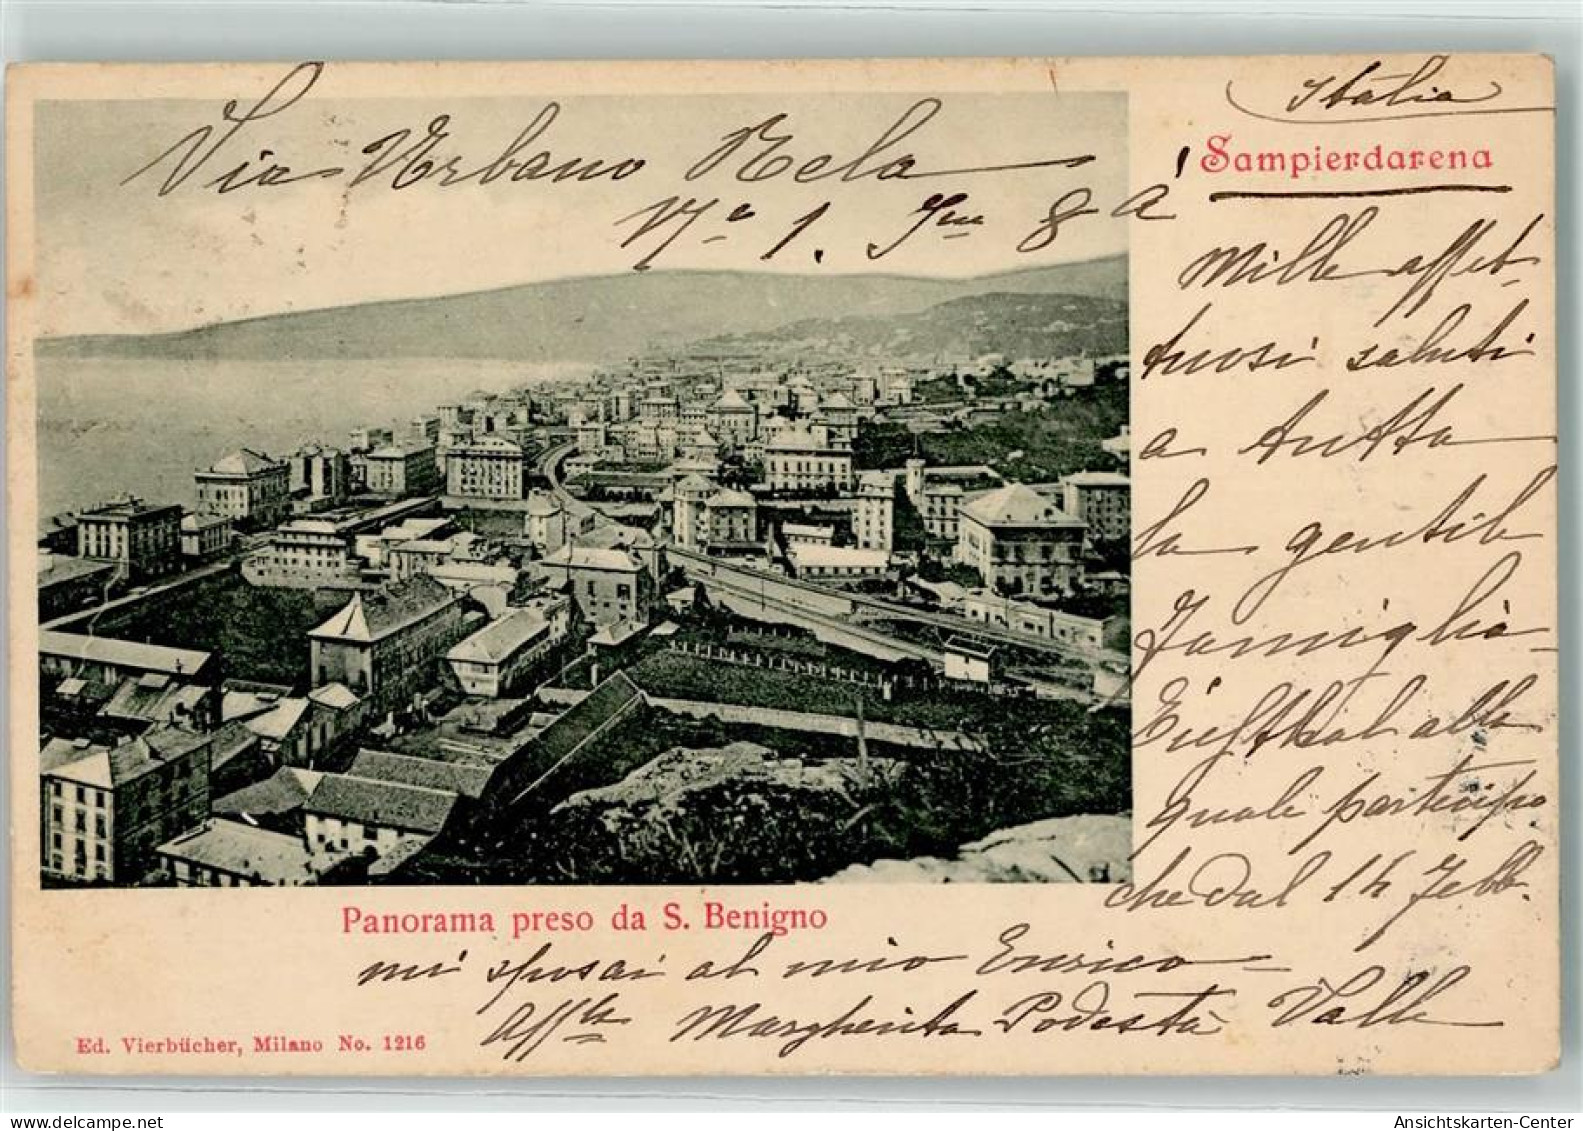 Italia
Sampierdarena
Via Urbano Rela
N.° 1. Int. 8 A
Mille affet-
tuosi saluti
a tutta
la gentile
Famiglia
alla
quale partecipo
che dal 14 Febb.
mi sposai al mio Enrico
Aff.ma Margherita Podestà Valle
Panorama preso da S. Benigno
Ed. Vierbücher, Milano No. 1216
delcampe.net
Ansichtskarten-Center